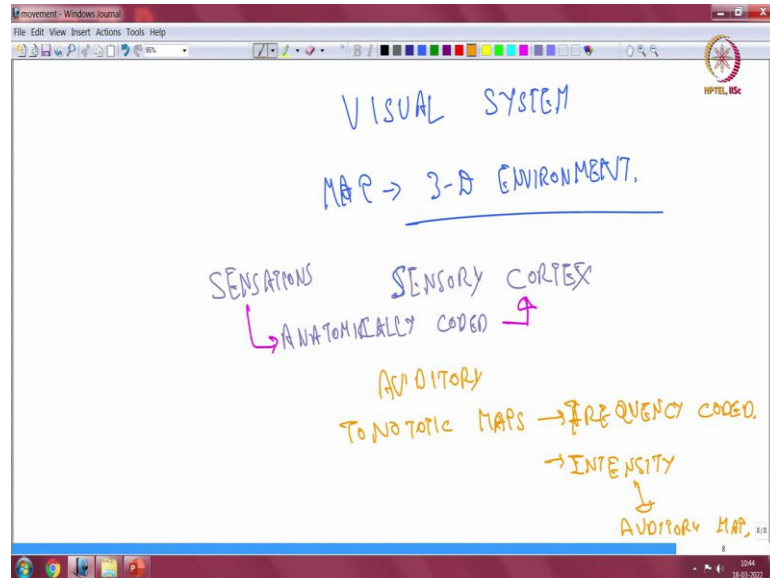 movement - Windows Journal
File Edit View Insert Actions Tools Help
95%
B I
NPTEL, IISc
VISUAL SYSTEM
MAP → 3-D ENVIRONMENT.
SENSATIONS SENSORY CORTEX
ANATOMICALLY CODED
AUDITORY
TONOTOPIC MAPS → FREQUENCY CODED.
→ INTENSITY
AUDITORY MAP,
8/8
8
10:44
18-03-2022